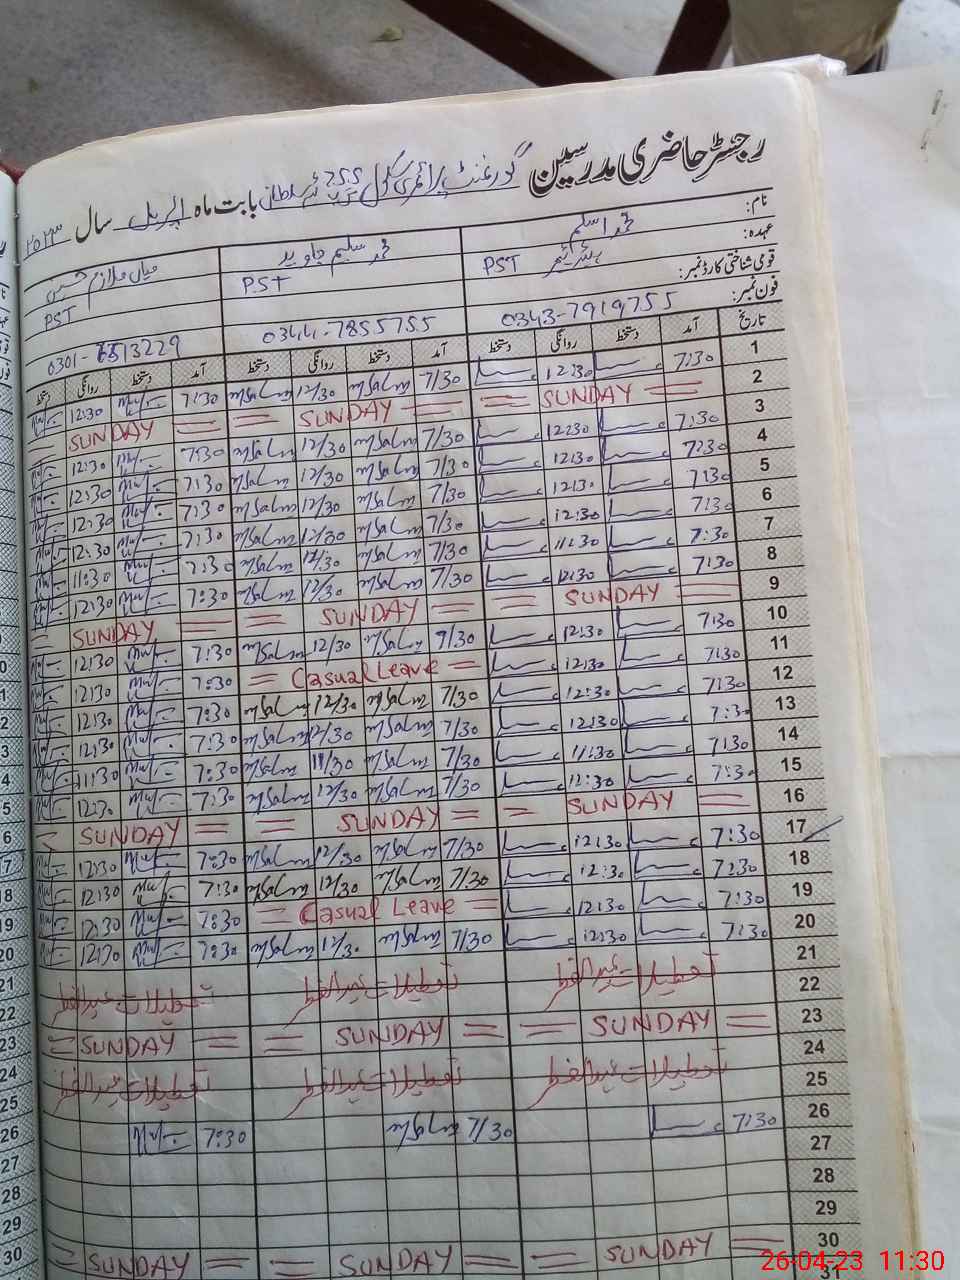 رجسٹر حاضری مدرسین گورنمنٹ پرائمری سکول 255 بابت ماہ اپریل سال ۲۰۲۳
نام: محمد اسلم محمد سلیم جاوید میاں ملازم حسین
عہدہ: PST P.ST PST
قومی شناختی کارڈ نمبر:
فون نمبر: 0343-7919755 0344-7855755 0301-
تاریخ آمد دستخط روانگی دستخط آمد دستخط روانگی دستخط آمد دستخط روانگی دستخط
1 7:30 12:30 7/30 12/30 7:30 12:30
2 = SUNDAY = = SUNDAY = = SUNDAY
3 7:30 12:30 7/30 12/30 7:30 12:30
4 7:30 12:30 7/30 12/30 7:30 12:30
5 7:30 12:30 7/30 12/30 7:30 12:30
6 7:30 12:30 7/30 12/30 7:30 12:30
7 7:30 11:30 7/30 11/30 7:30 11:30
8 7:30 12:30 7/30 12/30 7:30 12:30
9 = SUNDAY = = SUNDAY = = SUNDAY =
10 7:30 12:30 7/30 12/30 7:30 12:30
11 7:30 12:30 = Casual Leave = 7:30 12:30
12 7:30 12:30 7/30 12/30 7:30 12:30
13 7:30 12:30 7/30 12/30 7:30 12:30
14 7:30 11:30 7/30 11/30 7:30 11:30
15 7:30 12:30 7/30 12/30 7:30 12:30
16 = SUNDAY = = SUNDAY = = SUNDAY =
17 7:30 12:30 7/30 12/30 7:30 12:30
18 7:30 12:30 7/30 12/30 7:30 12:30
19 7:30 12:30 = Casual Leave = 7:30 12:30
20 7:30 12:30 7/30 12/30 7:30 12:30
21
22 تعطیلات عید الفطر تعطیلات عید الفطر تعطیلات عید الفطر
23 = SUNDAY = = SUNDAY = = SUNDAY =
24
25 تعطیلات عید الفطر تعطیلات عید الفطر تعطیلات عید الفطر
26 7:30 7/30 7:30
27
28
29
30 = SUNDAY = = SUNDAY = = SUNDAY =
31
26-04-23 11:30